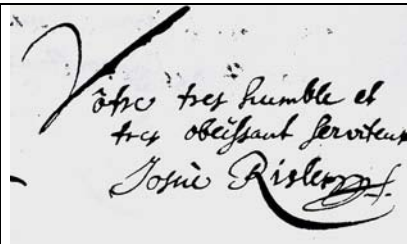 Vôtre tres humble et
tres obeissant serviteur
Josué Risler